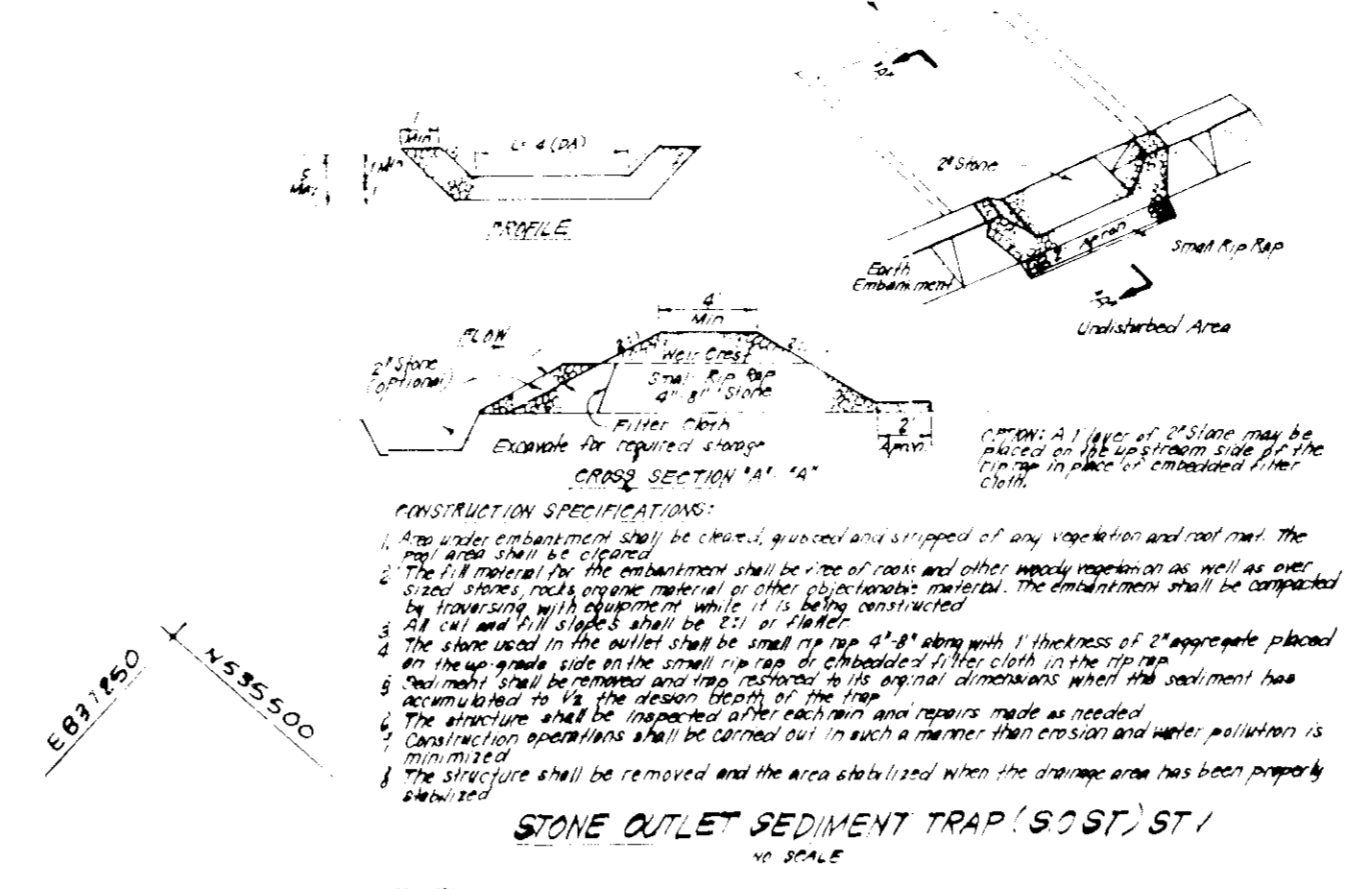 Min
L= 4 (DA)
5'
MAX
1' Min
PROFILE
2" Stone
Apron
Small Rip Rap
Earth
Embankment
Undisturbed Area
4'
Min
FLOW
2:1
2:1
Weir Crest
2" Stone
(optional)
Small Rip Rap
4"-8" Stone
Filter Cloth
Excavate for required storage
2'
Apron
CROSS SECTION "A"- "A"
OPTION: A 1' layer of 2" Stone may be
placed on the upstream side of the
rip rap in place of embedded filter
cloth.
CONSTRUCTION SPECIFICATIONS:
1. Area under embankment shall be cleared, grubbed and stripped of any vegetation and root mat. The
pool area shall be cleared
2. The fill material for the embankment shall be free of roots and other woody vegetation as well as over
sized stones, rocks, organic material or other objectionable material. The embankment shall be compacted
by traversing with equipment while it is being constructed
3. All cut and fill slopes shall be 2:1 or flatter
4. The stone used in the outlet shall be small rip rap 4"-8" along with 1' thickness of 2" aggregate placed
on the up-grade side on the small rip rap or embedded filter cloth in the rip rap
5. Sediment shall be removed and trap restored to its orginal dimensions when the sediment has
accumulated to 1/2 the design depth of the trap
6. The structure shall be inspected after each rain and repairs made as needed
7. Construction operations shall be carried out in such a manner than erosion and water pollution is
minimized
8. The structure shall be removed and the area stabilized when the drainage area has been properly
stabilized
E837250
N535500
STONE OUTLET SEDIMENT TRAP (SOST) ST 1
NO SCALE